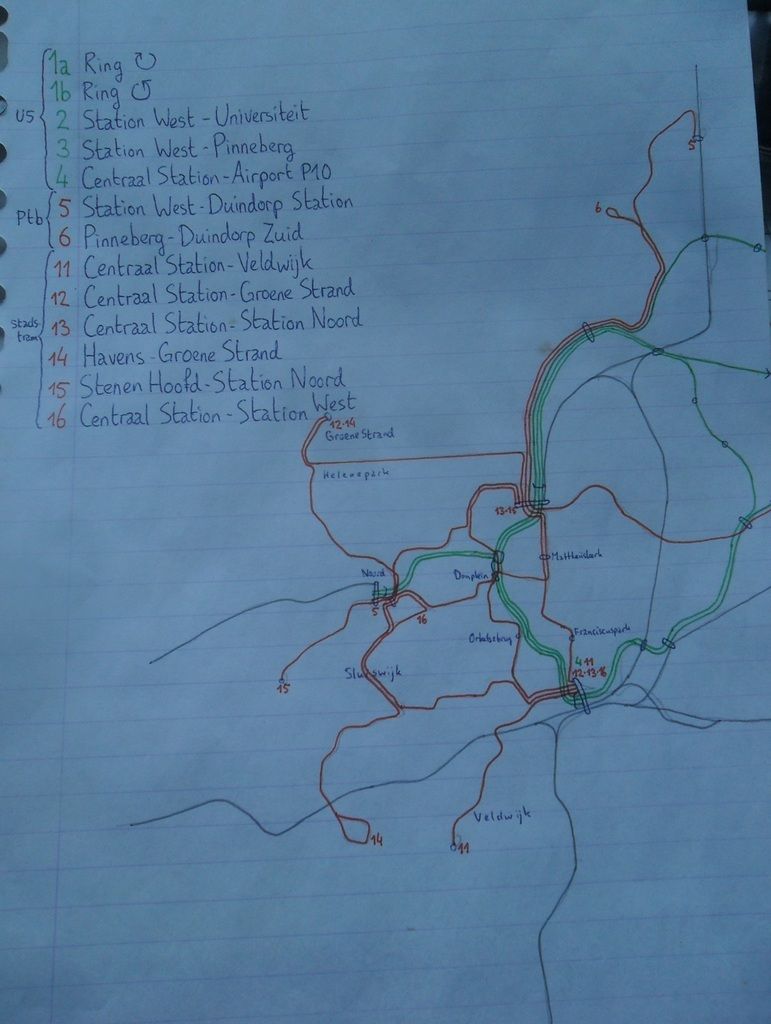 1a Ring ↻
1b Ring ↺
U5
2 Station West - Universiteit
3 Station West - Pinneberg
4 Centraal Station - Airport P10
Ptb
5 Station West - Duindorp Station
6 Pinneberg - Duindorp Zuid
11 Centraal Station - Veldwijk
12 Centraal Station - Groene Strand
Stads
tram
13 Centraal Station - Station Noord
14 Havens - Groene Strand
15 Stenen Hoofd - Station Noord
16 Centraal Station - Station West
5
6
12-14
Groene Strand
Helenepark
13-15
Noord
Domplein
5
16
15
Franciscuspark
4 11
12-13-16
Veldwijk
14
11